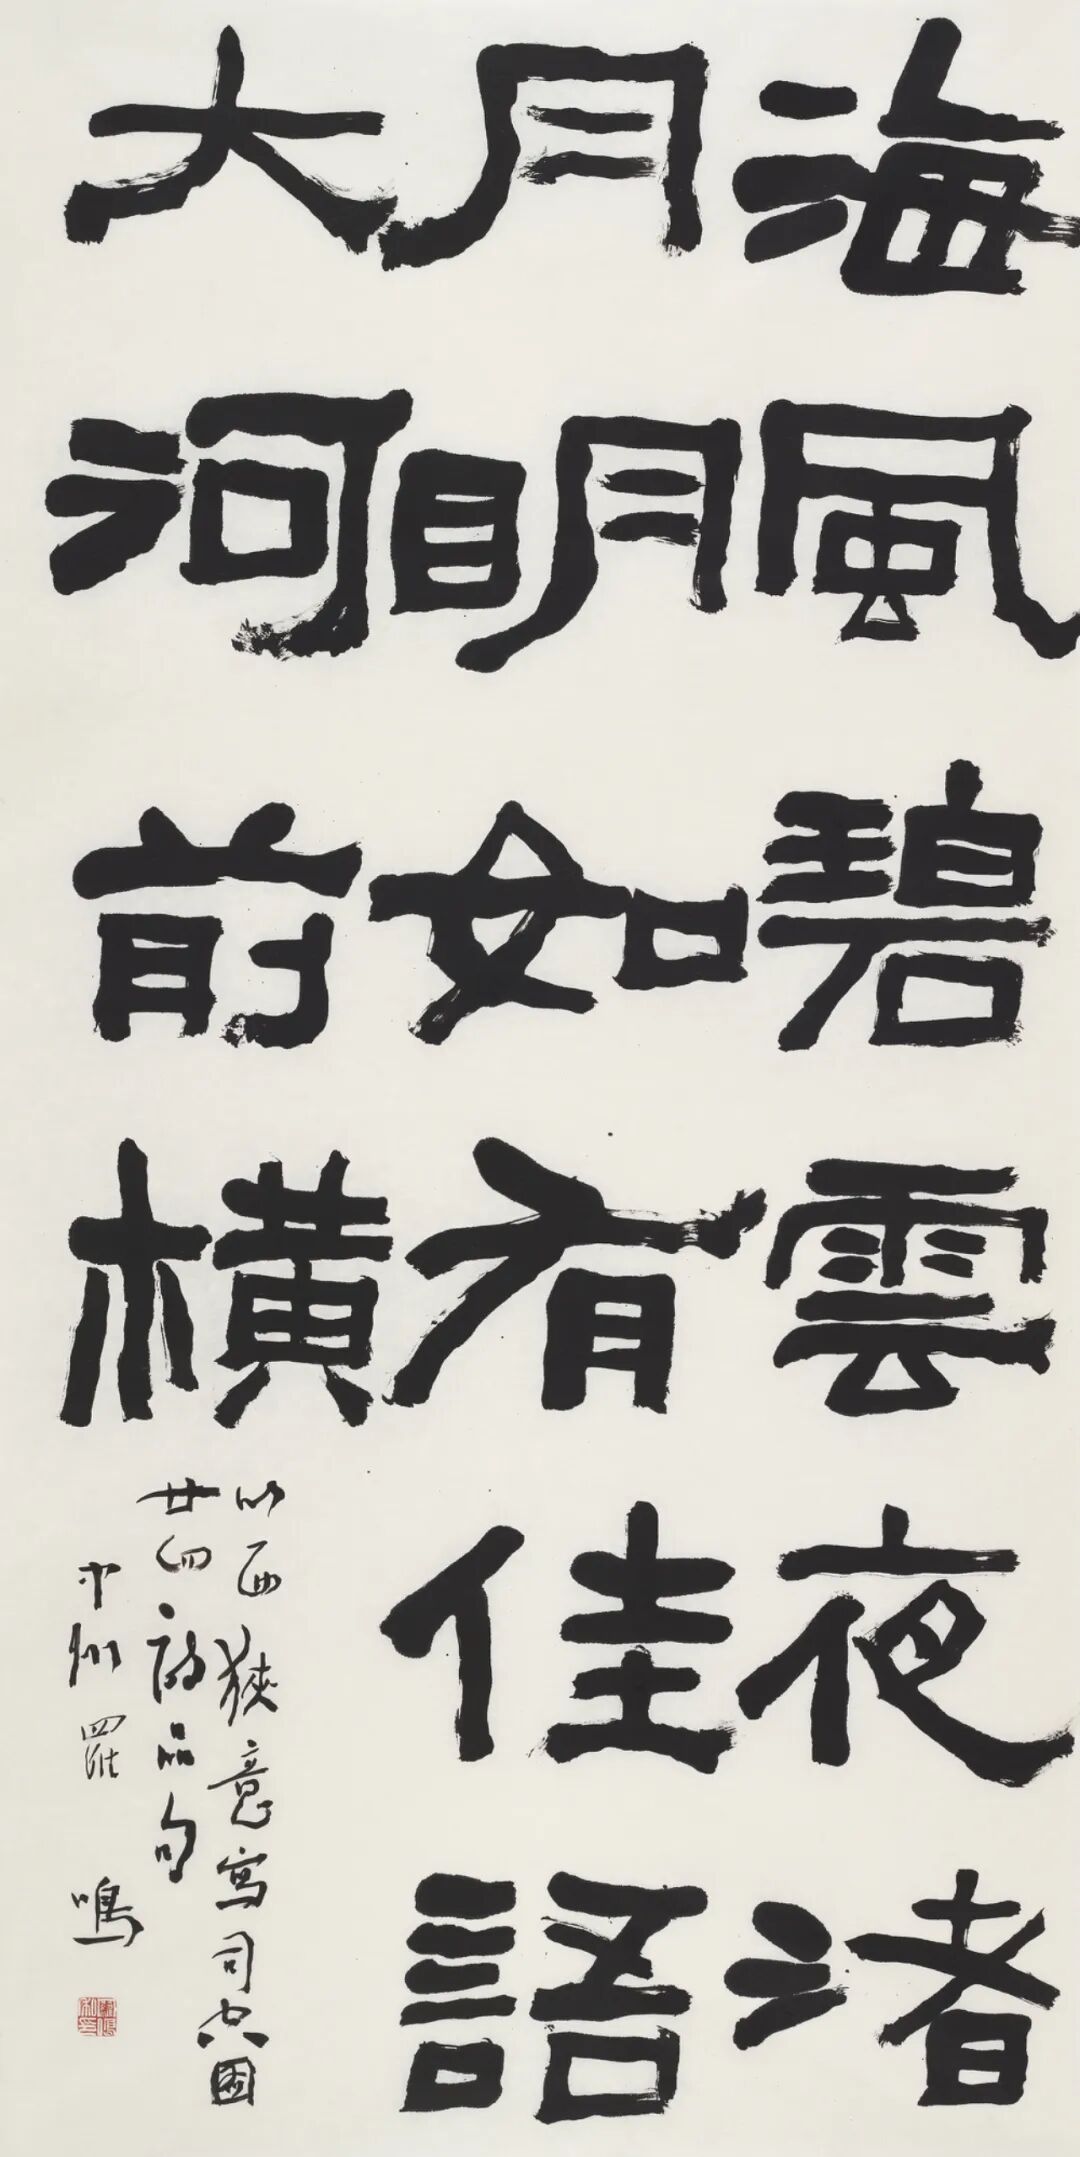 海風碧雲夜渚
月明如有佳語
大河前橫
以西狹意寫司空圖
廿四詩品句
中州羅鳴